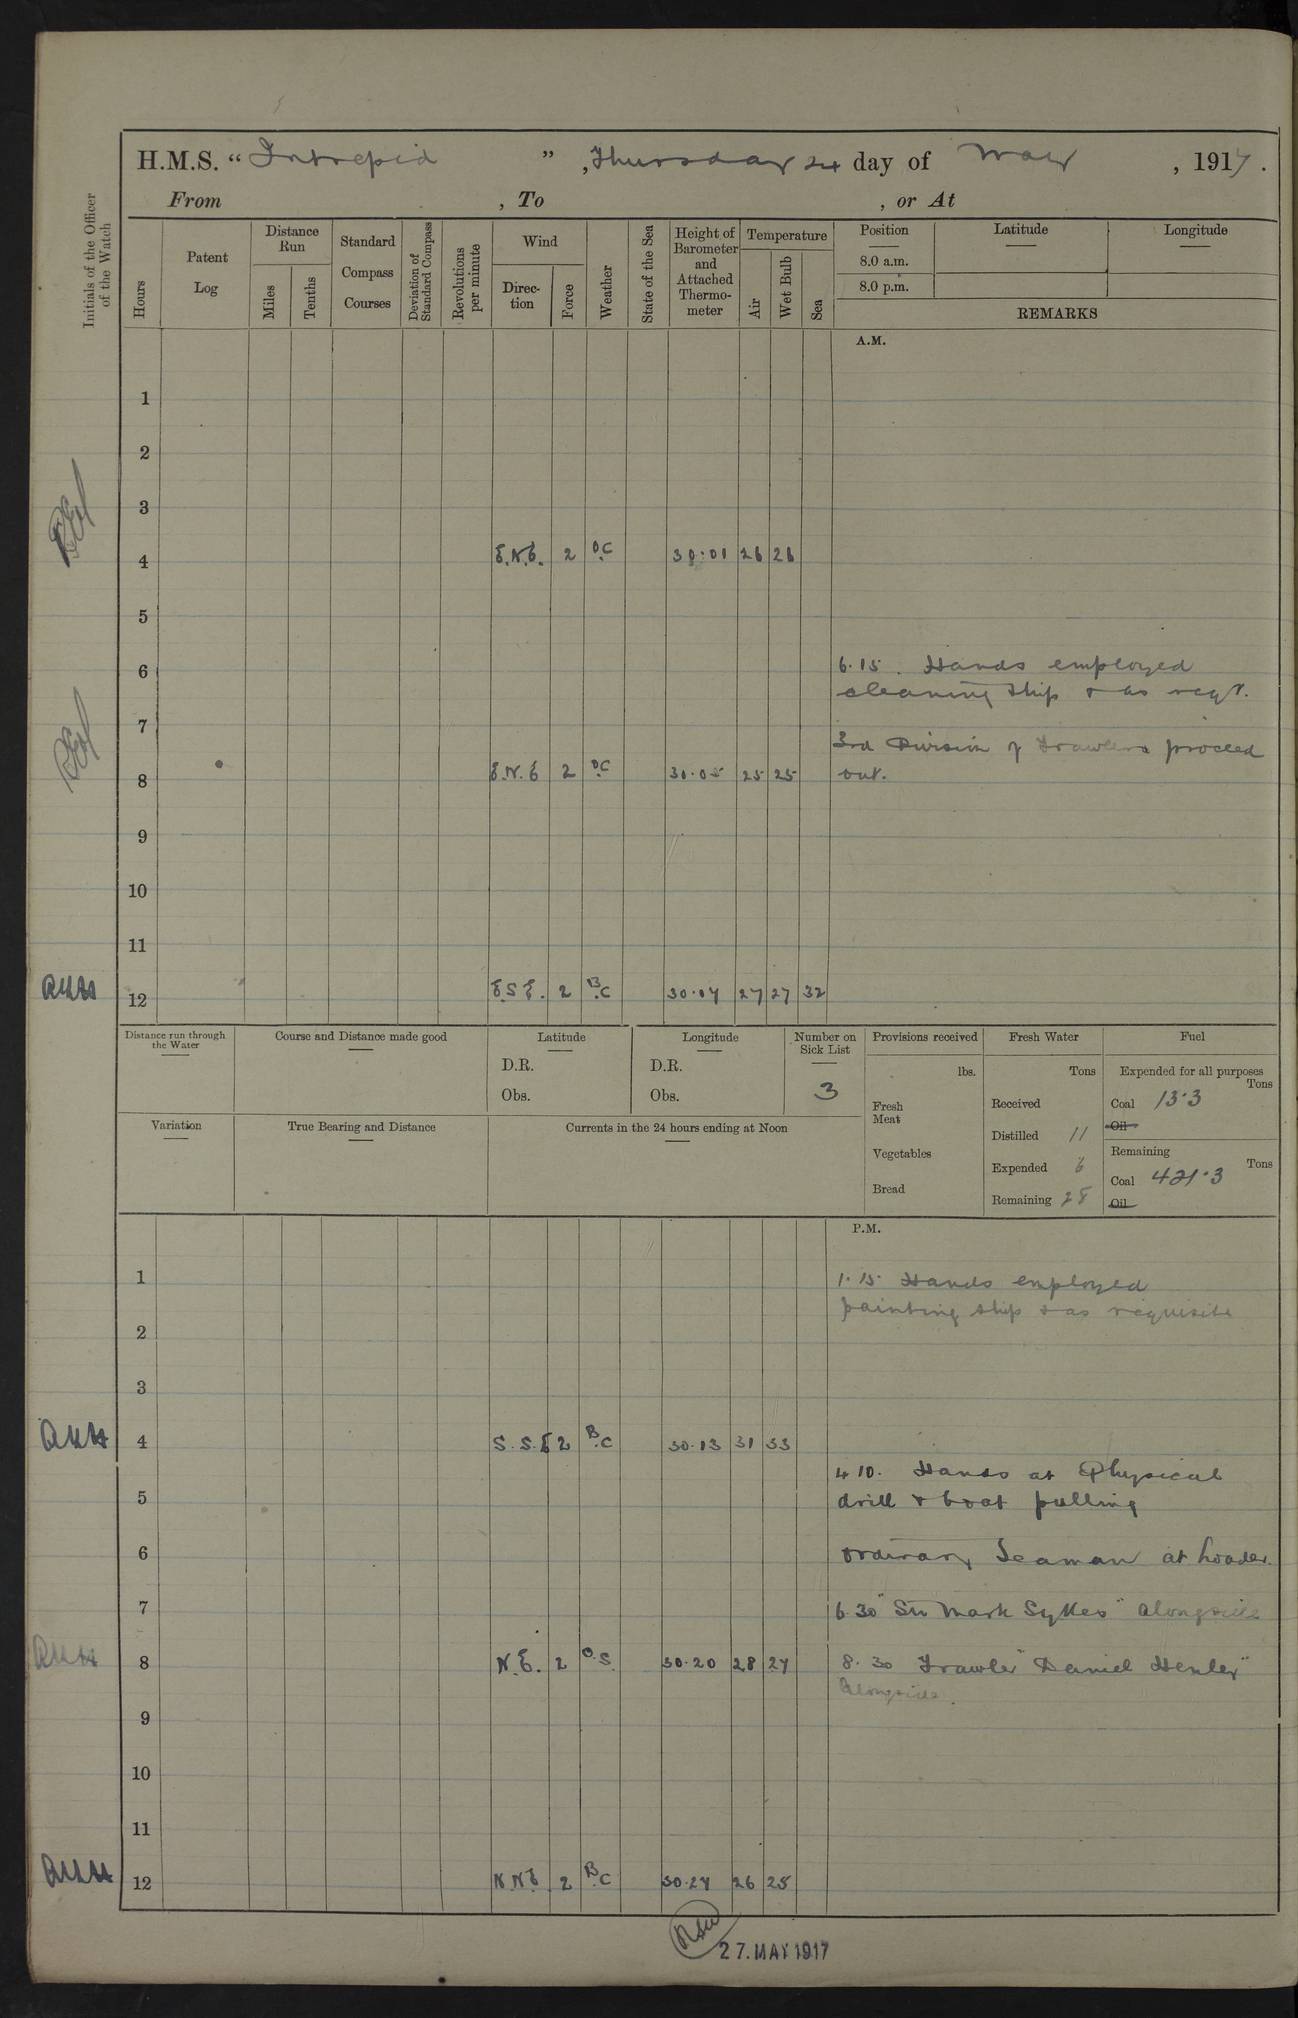 H.M.S. “ Intrepid ” , Thursday 24 day of May , 1917.
From , To , or At
Initials of the Officer of the Watch
Hours
Patent Log
Distance Run
Miles
Tenths
Standard Compass Courses
Deviation of Standard Compass
Revolutions per minute
Wind
Direc-tion
Force
Weather
State of the Sea
Height of Barometer and Attached Thermo-meter
Temperature
Air
Wet Bulb
Sea
Position
8.0 a.m.
8.0 p.m.
Latitude
Longitude
REMARKS
A.M.
1
2
3
4 E.N.E. 2 O.C 30.01 26 26
5
6 6.15. Hands employed
cleaning ship & as reqt.
7
3rd Division of Trawlers proceed
8 E.N.E 2 O.C 30.05 25 25 out.
9
10
11
12 E.S.E. 2 B.C 30.07 27 27 32
Distance run through the Water
Course and Distance made good
Latitude
D.R.
Obs.
Longitude
D.R.
Obs.
Number on Sick List
3
Provisions received
lbs.
Fresh Meat
Vegetables
Bread
Fresh Water
Tons
Received
Distilled 11
Expended 6
Remaining 28
Fuel
Expended for all purposes
Tons
Coal 13.3
Oil
Remaining
Tons
Coal 421.3
Oil
Variation
True Bearing and Distance
Currents in the 24 hours ending at Noon
P.M.
1 1.15 Hands employed
painting ship & as requisite
2
3
4 S.S.E 2 B.C 30.13 31 33
4 10. Hands at Physical
5 drill & boat pulling
6 ordinary Seaman at loader.
7 6.30 "Sir Mark Sykes" alongside
8 N.E. 2 O.S. 30.20 28 27 8.30 Trawler "Daniel Henley"
alongside.
9
10
11
12 N.N.E 2 B.C 30.27 26 25
27.MAY 1917